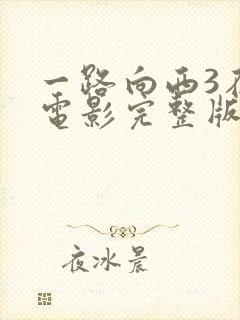 一路向西3在
電影完整版
夜冰晨